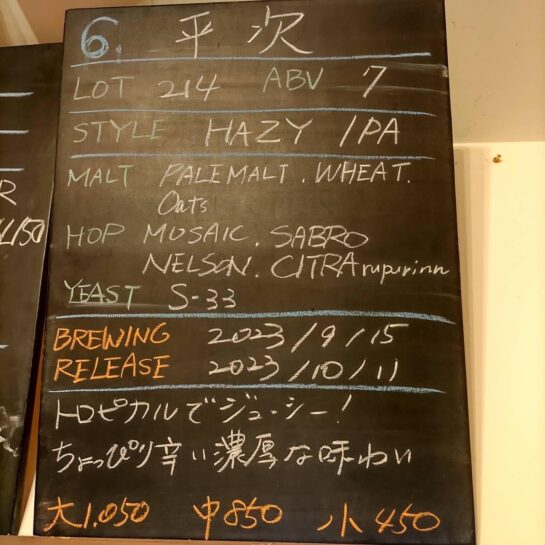 6. 平次
LOT 214 ABV 7
STYLE HAZY IPA
MALT PALE MALT. WHEAT.
Oats
HOP MOSAIC. SABRO
NELSON. CITRA rupurinn
YEAST S-33
BREWING 2023/9/15
RELEASE 2023/10/11
トロピカルでジューシー!
ちょっぴり辛い濃厚な味わい
大1.050 中850 小450
R
150